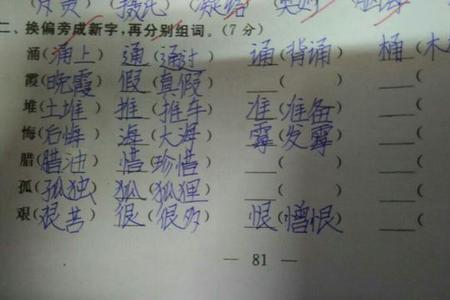 二、换偏旁成新字,再分别组词。(7分)
涌(涌上) 通(通过) 诵(背诵) 桶(木
霞(晓霞) 假(真假) ___( ) ___(
堆(土堆) 推(推车) 准(准备) ___(
悔(后悔) 海(大海) 霉(发霉) ___(
腊(腊油) 惜(珍惜) ___( ) ___(
孤(孤独) 狐(狐狸) ___( ) ___(
艰(艰苦) 很(很多) 恨(憎恨) ___(
— 81 —